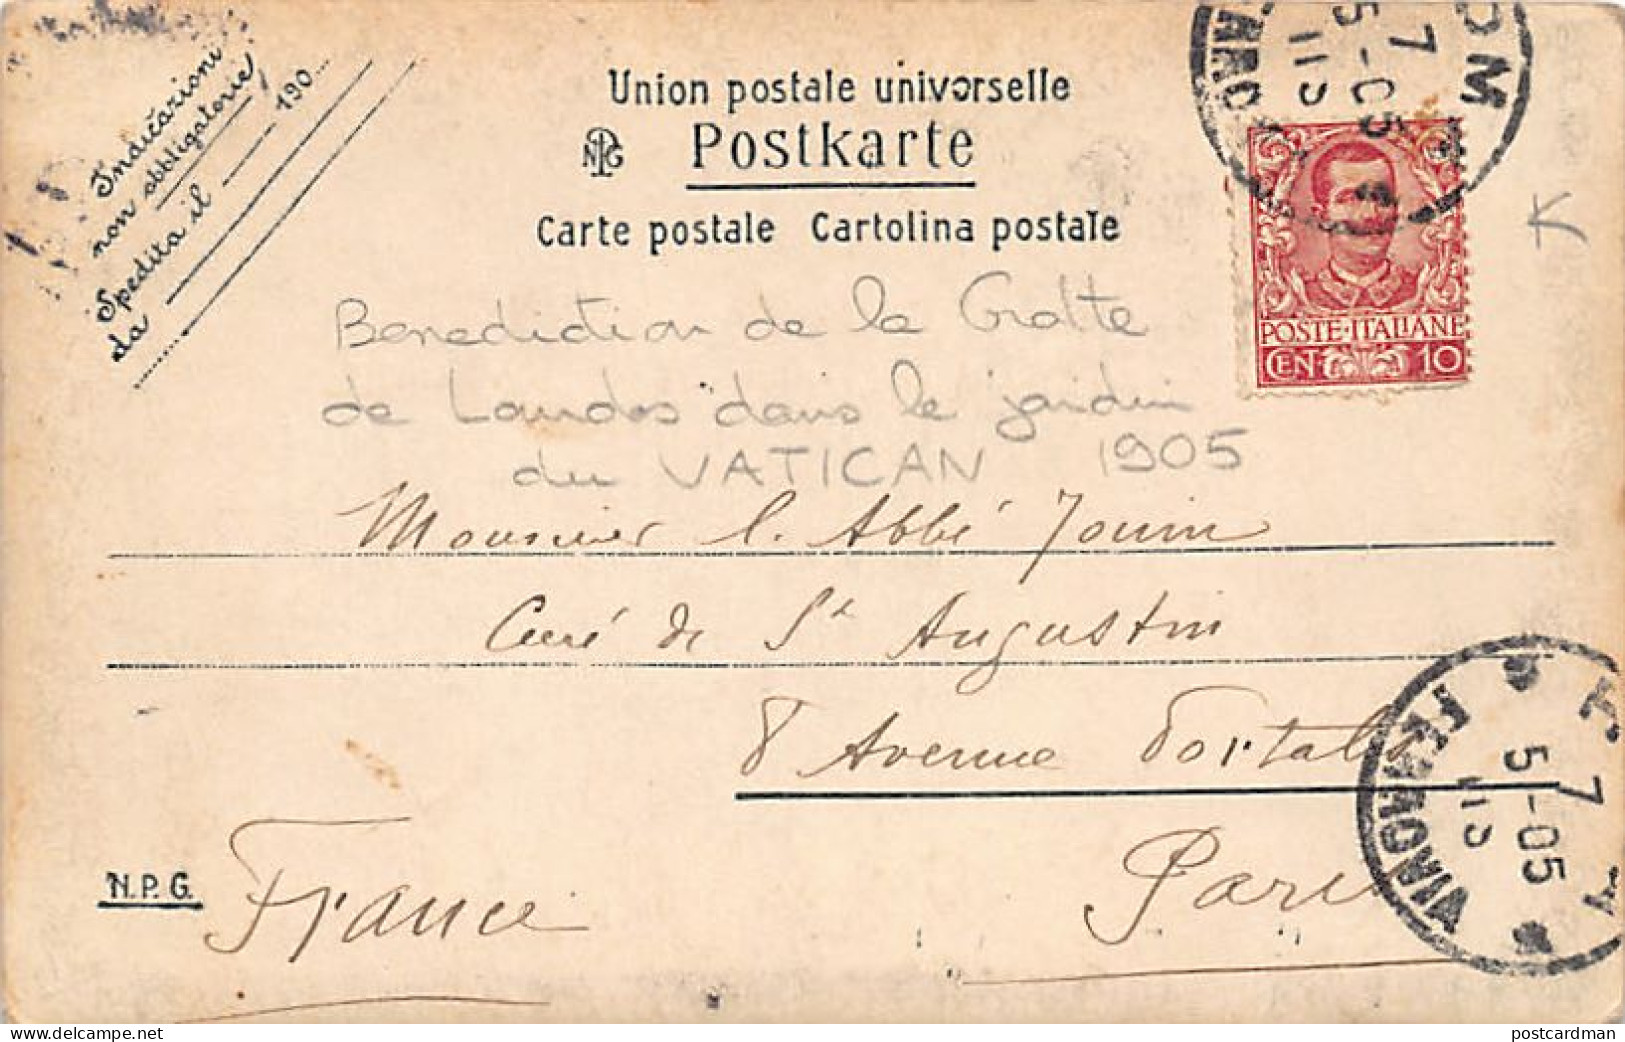 Indicazioni
non obbligatorie
Spedita il 190
da
Union postale universelle
NPG Postkarte
Carte postale Cartolina postale
ROM
7
5-05
11S
FERROVIA
POSTE·ITALIANE
CEN· 10
K
Benediction de la Grotte
de Lourdes dans le jardin
du VATICAN 1905
Monsieur l. Abbé Jouin
Curé de St Augustin
8 Avenue Portalis
Paris
France
N.P.G.
FERROVIA
7
5-05
11S
delcampe.net
postcardman